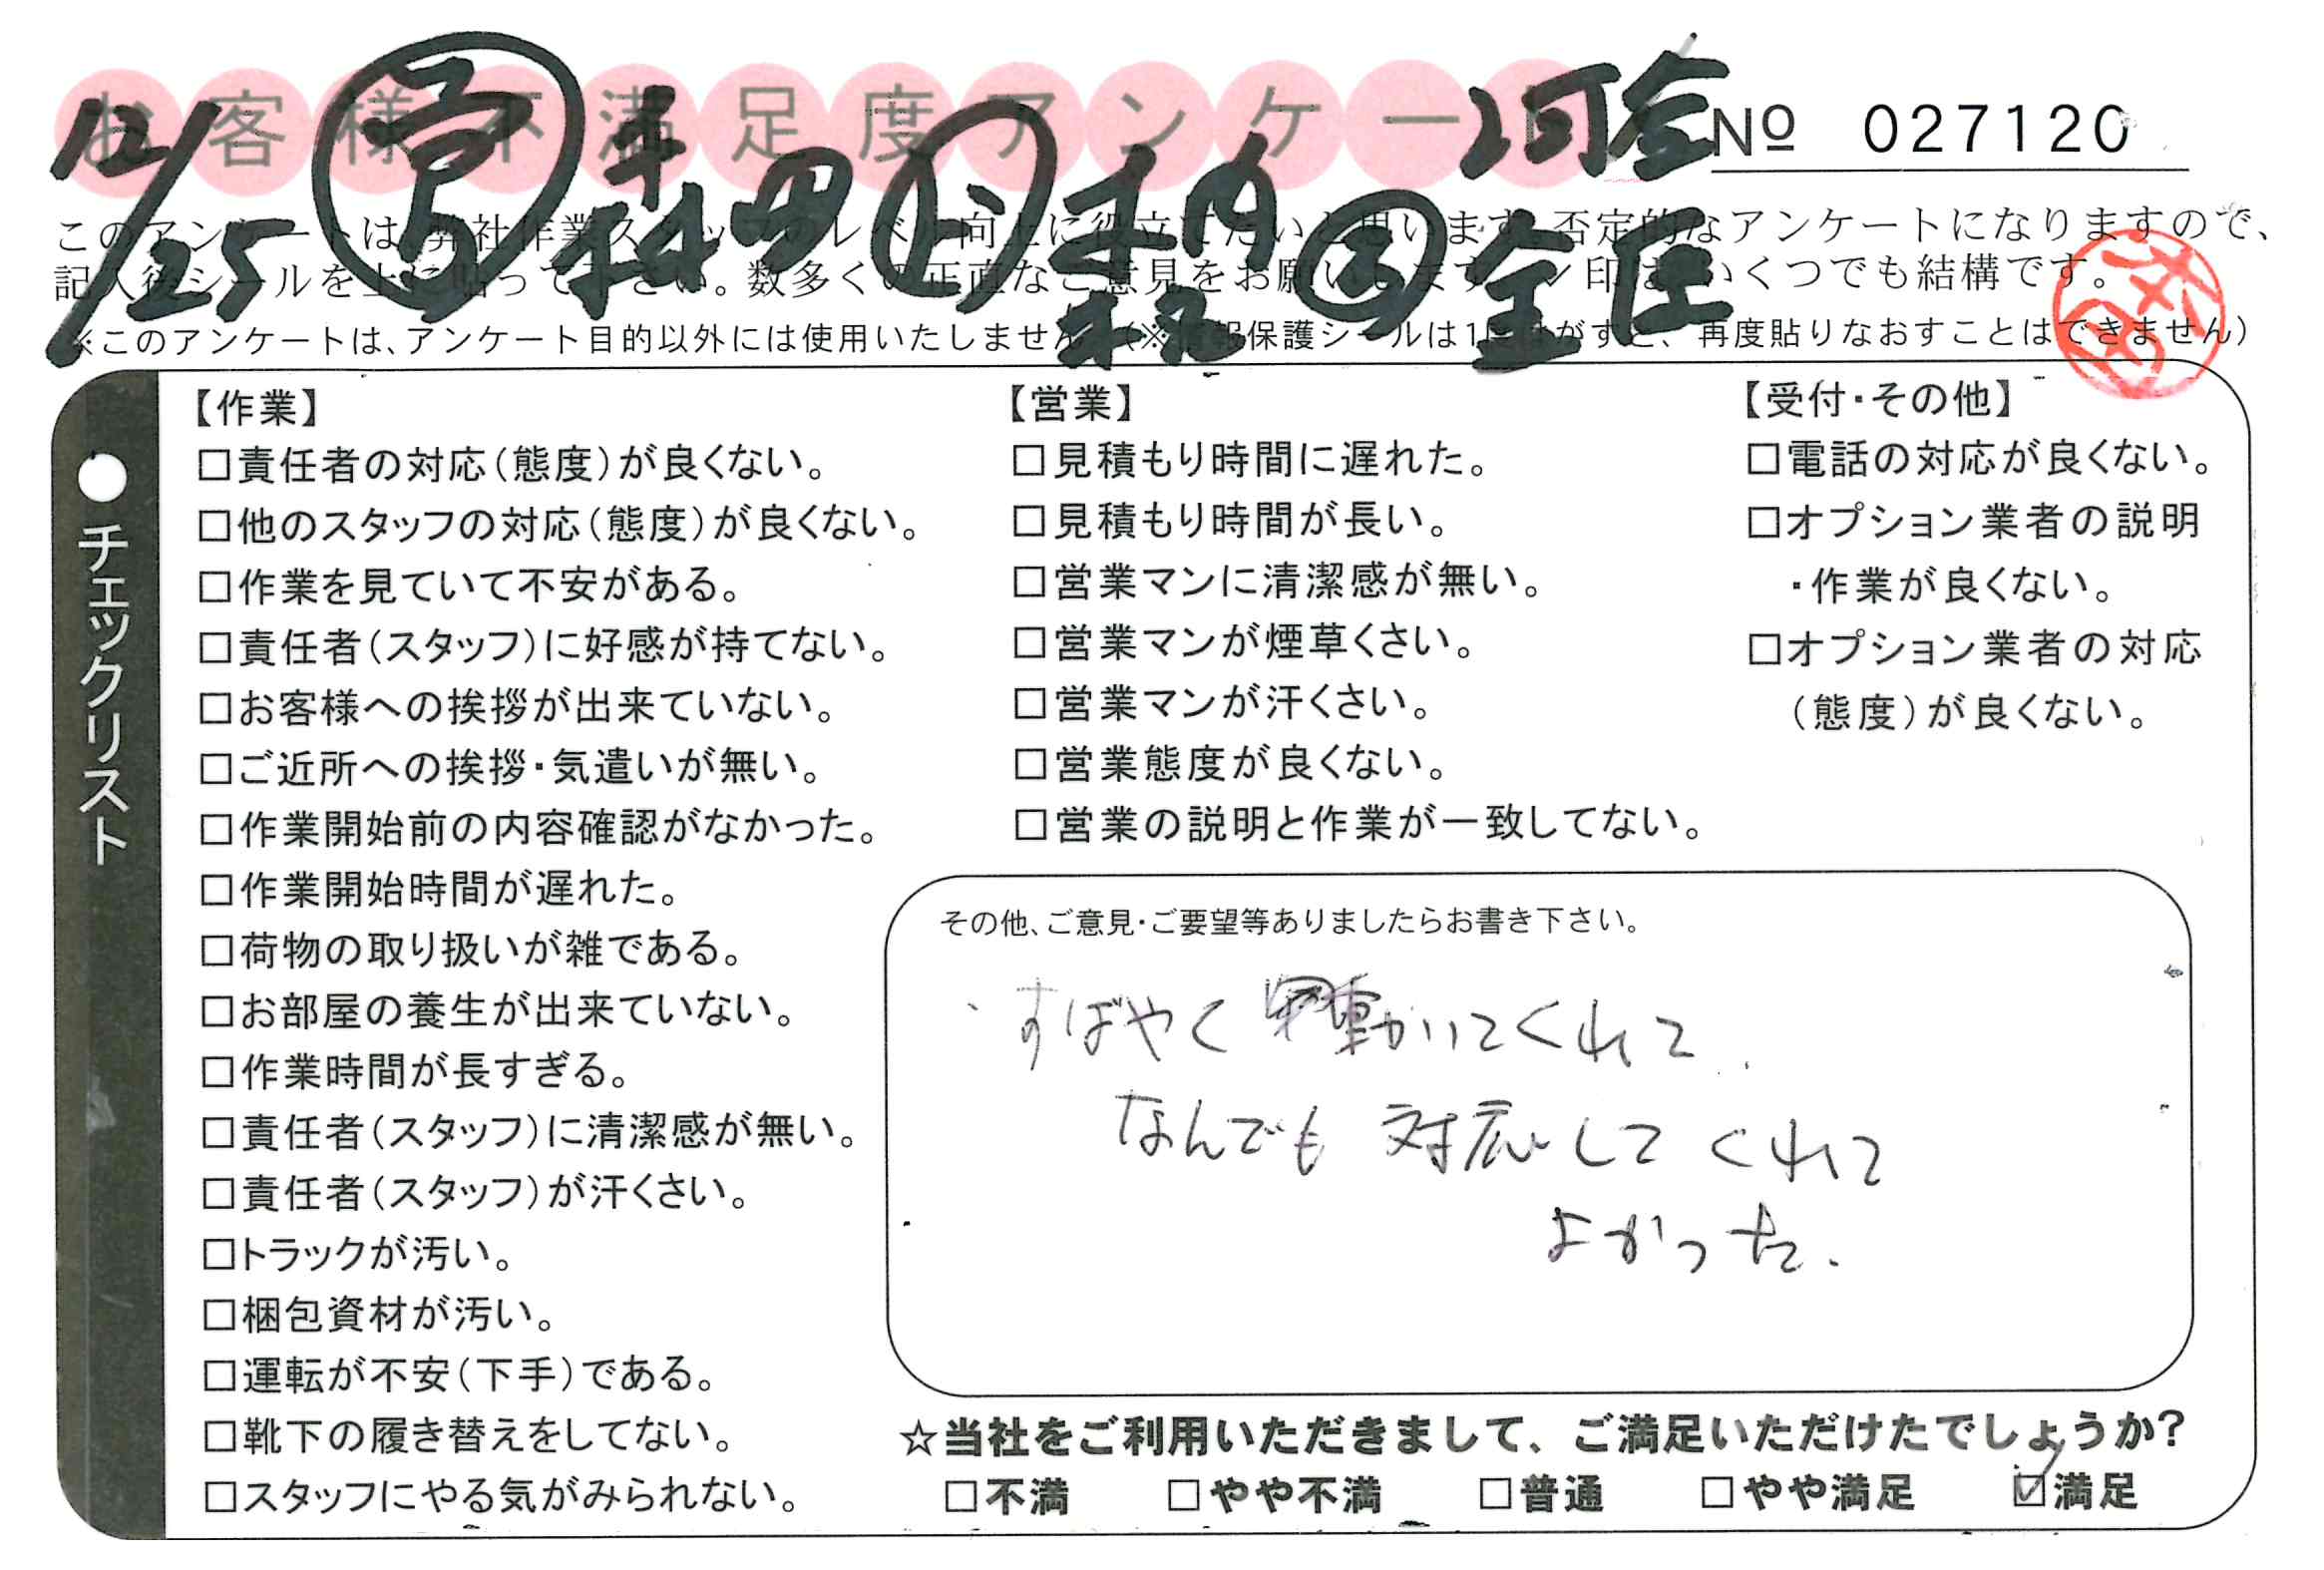 お客様不満足度アンケート
Nº 027120
12/25
このアンケートは、弊社作業スタッフのレベル向上に役立てたいと思います。否定的なアンケートになりますので、
記入後シールを上に貼って下さい。数多くの正直なご意見をお願いします。ペン印は、いくつでも結構です。
※このアンケートは、アンケート目的以外には使用いたしません。(※情報保護シールは1度はがすと、再度貼りなおすことはできません)
●チェックリスト
【作業】
□責任者の対応(態度)が良くない。
□他のスタッフの対応(態度)が良くない。
□作業を見ていて不安がある。
□責任者(スタッフ)に好感が持てない。
□お客様への挨拶が出来ていない。
□ご近所への挨拶・気遣いが無い。
□作業開始前の内容確認がなかった。
□作業開始時間が遅れた。
□荷物の取り扱いが雑である。
□お部屋の養生が出来ていない。
□作業時間が長すぎる。
□責任者(スタッフ)に清潔感が無い。
□責任者(スタッフ)が汗くさい。
□トラックが汚い。
□梱包資材が汚い。
□運転が不安(下手)である。
□靴下の履き替えをしてない。
□スタッフにやる気がみられない。
【営業】
□見積もり時間に遅れた。
□見積もり時間が長い。
□営業マンに清潔感が無い。
□営業マンが煙草くさい。
□営業マンが汗くさい。
□営業態度が良くない。
□営業の説明と作業が一致してない。
【受付・その他】
□電話の対応が良くない。
□オプション業者の説明
・作業が良くない。
□オプション業者の対応
(態度)が良くない。
その他、ご意見・ご要望等ありましたらお書き下さい。
・すばやく動いてくれて、
なんでも対応してくれて
よかった.
☆当社をご利用いただきまして、ご満足いただけたでしょうか?
□不満 □やや不満 □普通 □やや満足 ☑満足